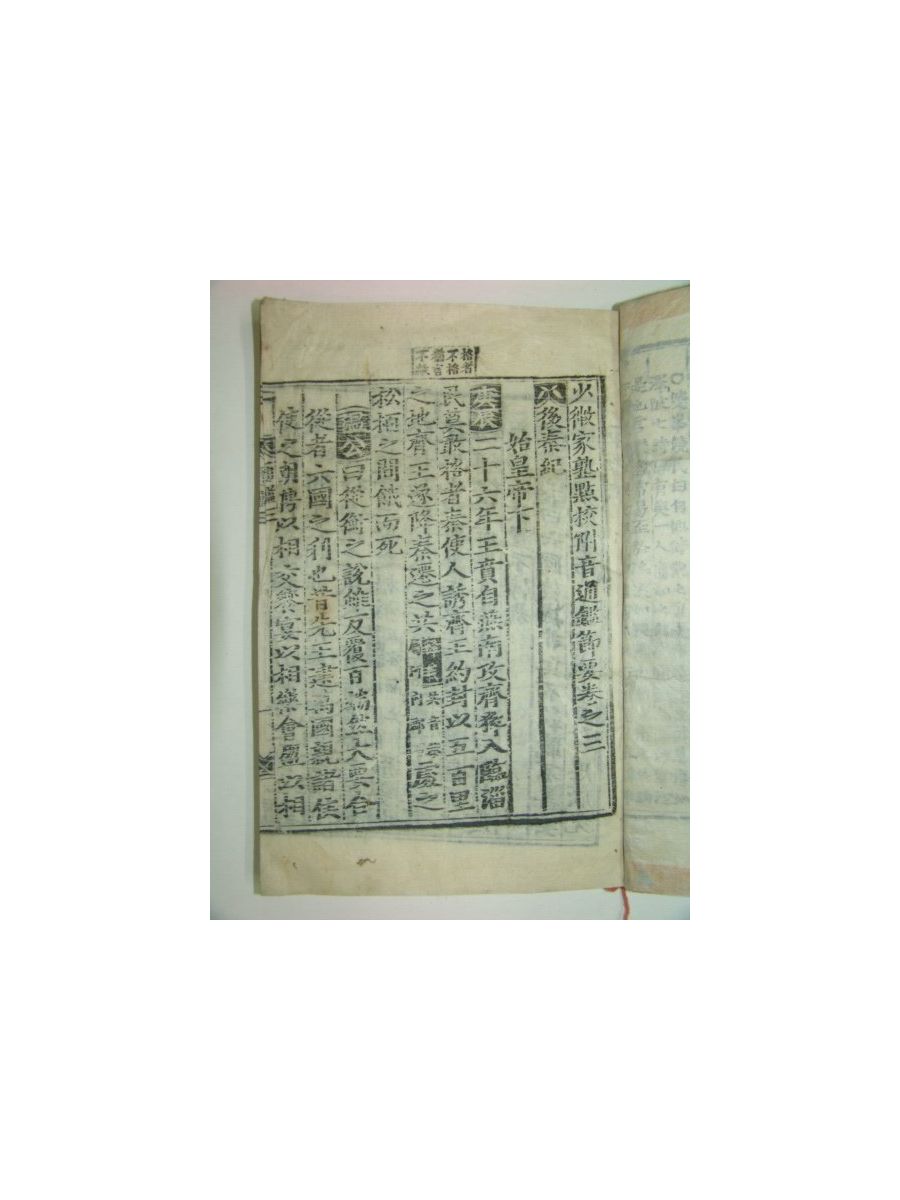 格者
不格
猶言
不敢
少微家塾點校附音通鑑節要卷之三
後秦紀
始皇帝下
二十六年王賁自燕南攻齊猝入臨淄
民莫敢格者秦使人誘齊王約封以五百里
之地齊王遂降秦遷之共處之
松柏之間餓而死
溫公曰從衡之說雖反覆百端然大要合
從者六國之利也昔先王建萬國親諸侯
使之朝聘以相交饗宴以相樂會盟以相